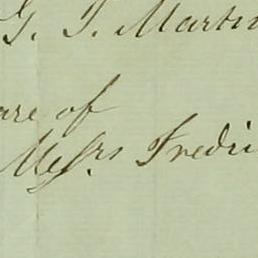 G. T. Martin
are of
Messrs Fredri